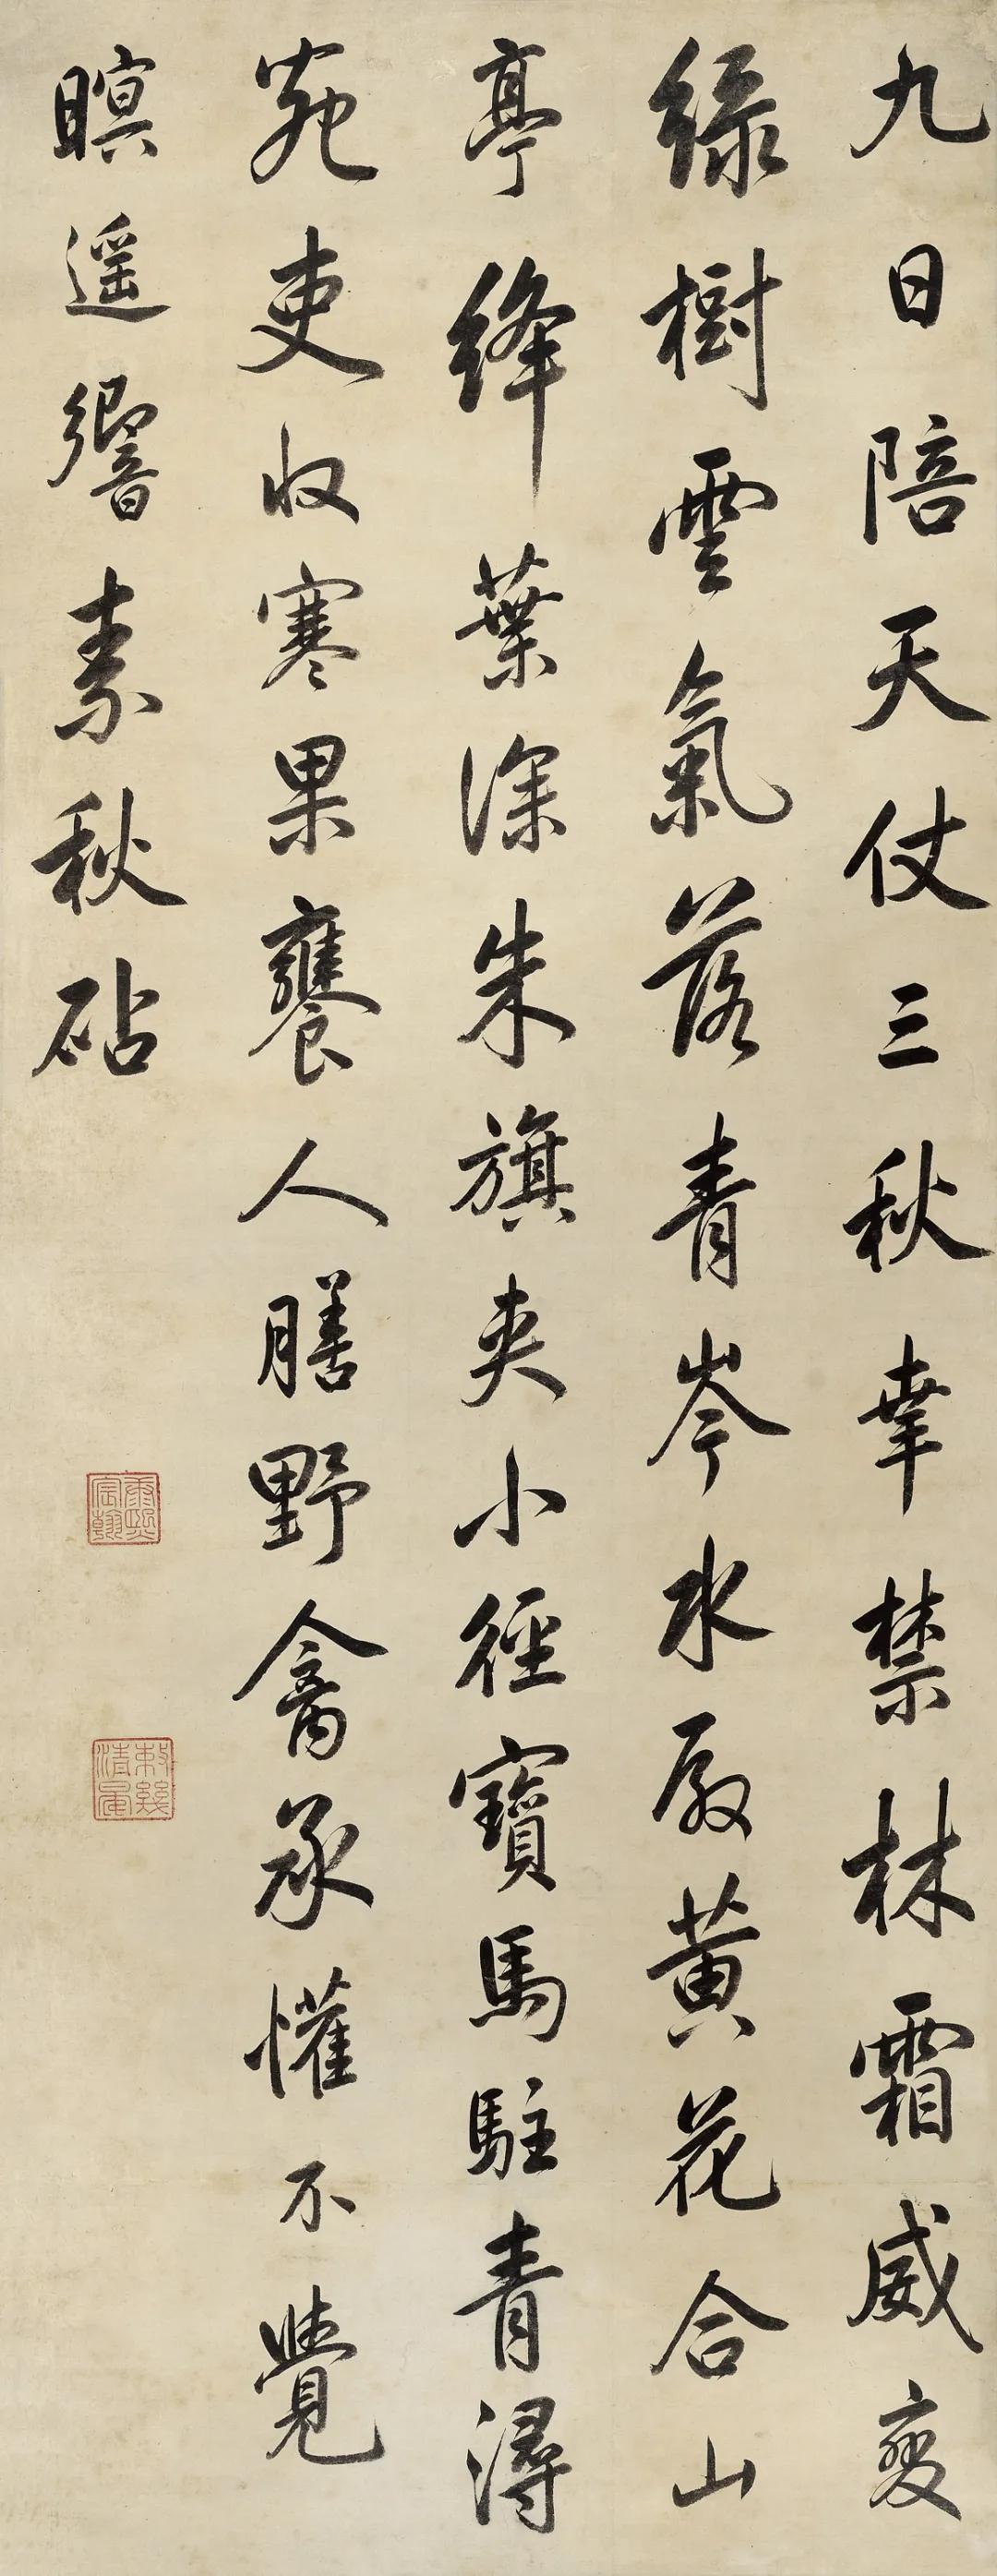 九日陪天仗三秋幸禁林霜威變
綠樹雲氣落青岑水殿黃花合山
亭絳葉深朱旗夾小徑寶馬駐青潯
苑吏收寒果饔人膳野禽承懽不覺
暝遥響素秋砧
康熙宸翰
敕幾清晏